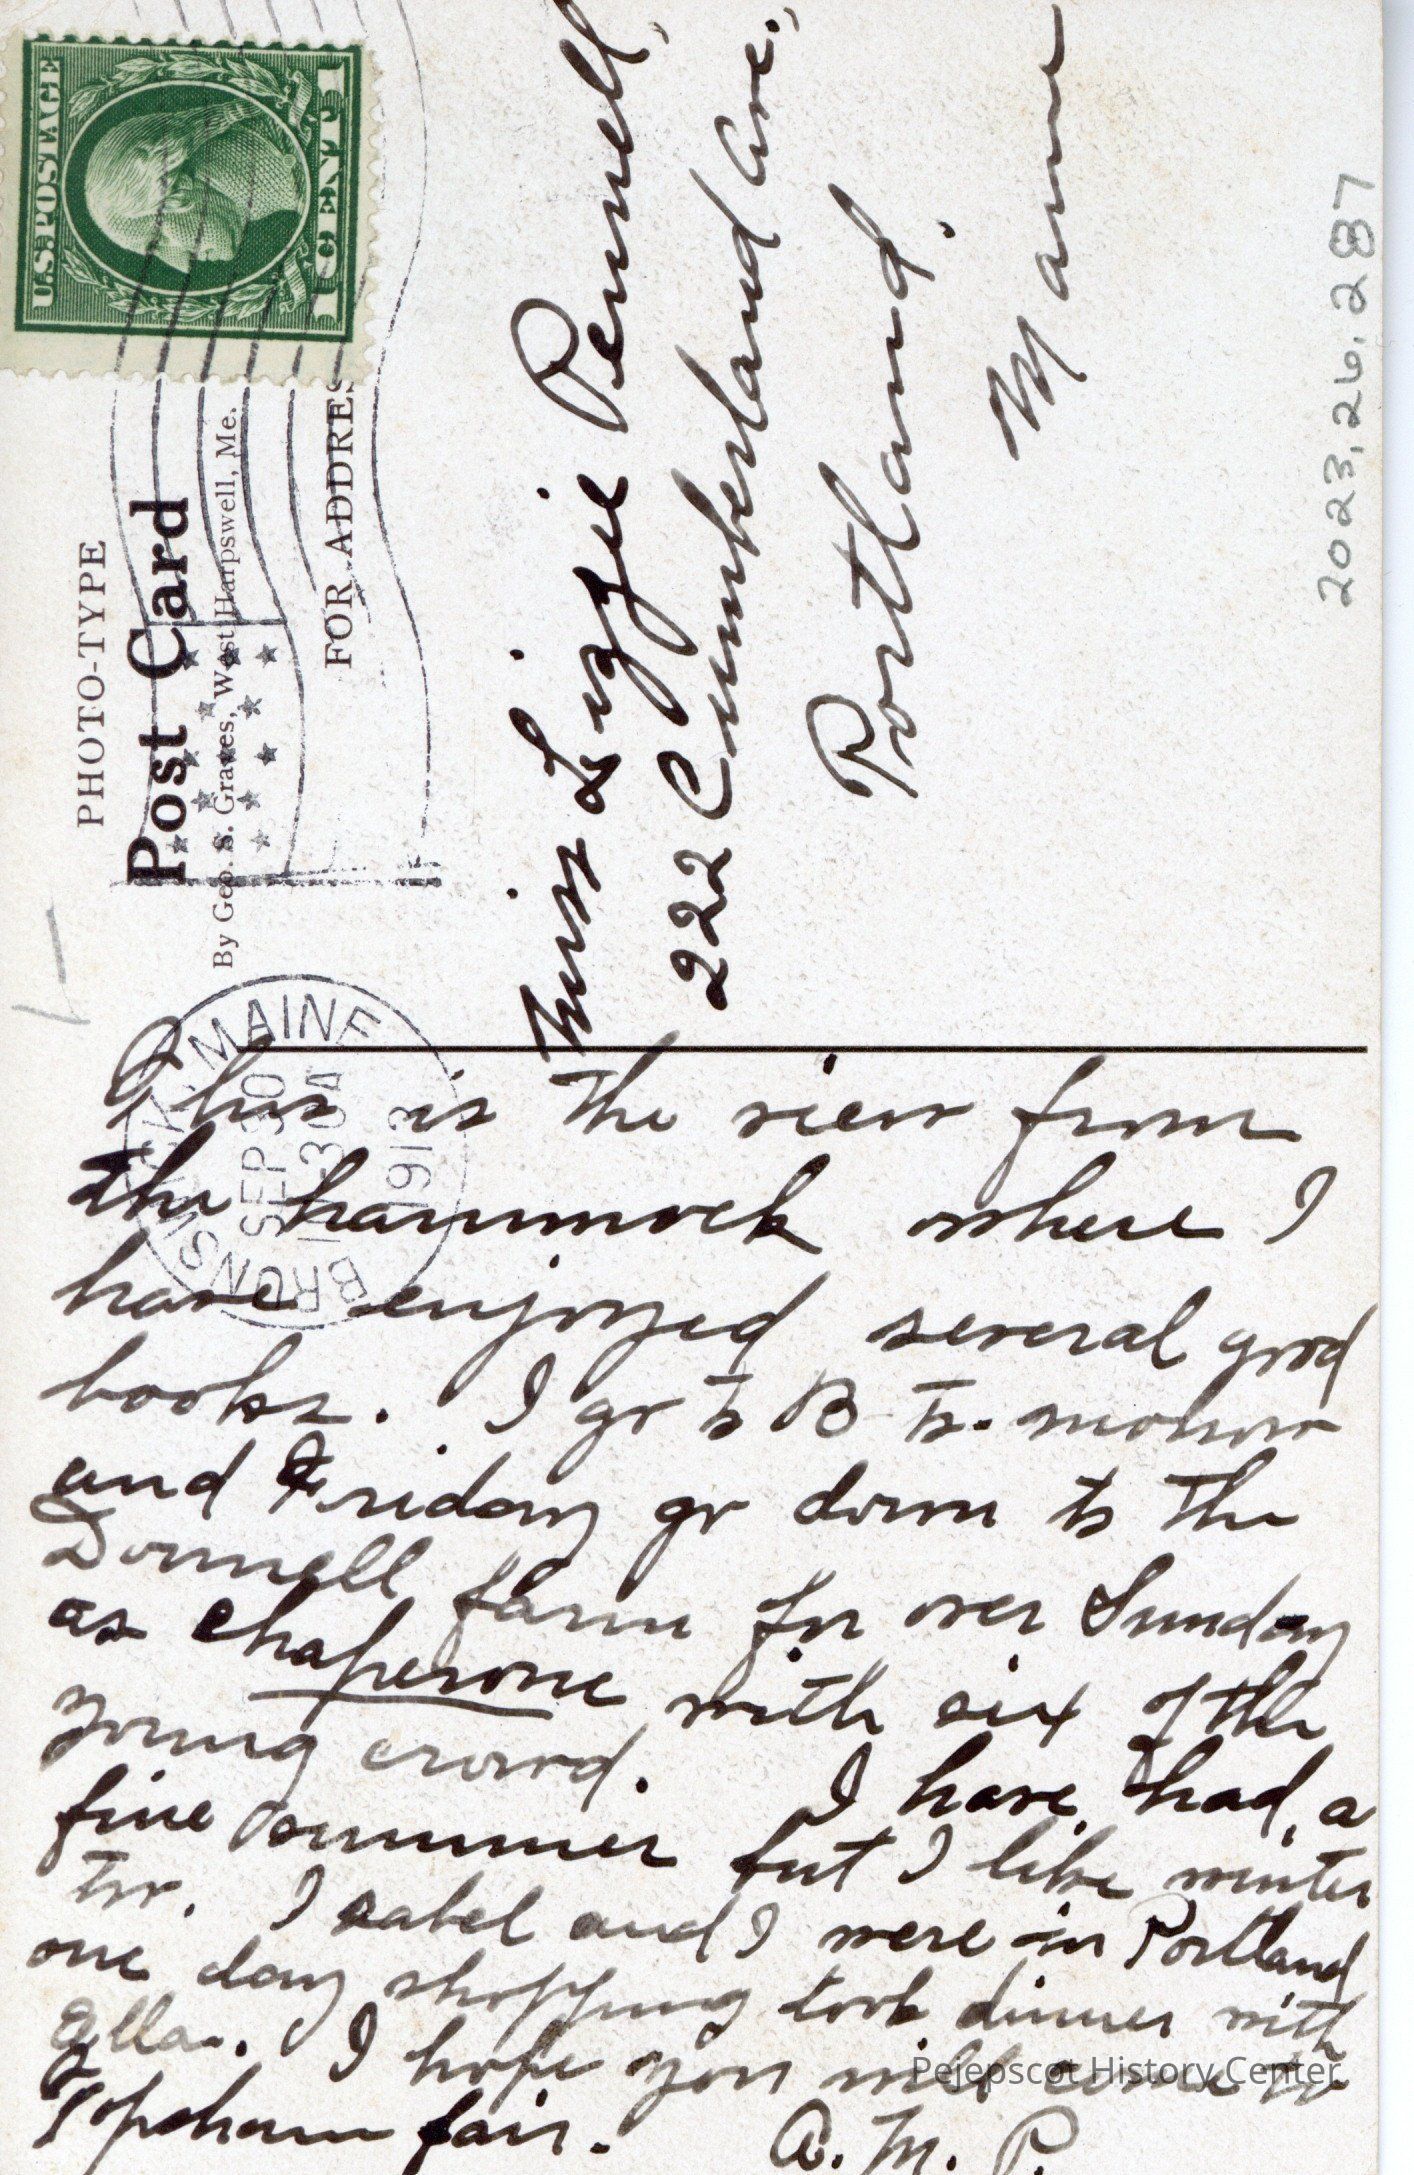 U.S. POSTAGE
1 CENT 1
PHOTO-TYPE
Post Card
By Geo. S. Graves, West Harpswell, Me.
FOR ADDRES
BRUNSWICK, MAINE
SEP 30
11-30A
1913
Miss Lizzie Pennell,
222 Cumberland Ave.,
Portland.
Maine
2023.26.287
This is the view from
the hammock where I
have enjoyed several good
books. I go to B- to-morrow
and Friday go down to the
Donnell farm for over Sunday
as chaperone with six of the
young crowd. I have had a
fine summer but I like winter
too. Isabel and I were in Portland
one day shopping took dinner with
Ella. I hope you will come to
Topsham fair. A. M. P.
Pejepscot History Center